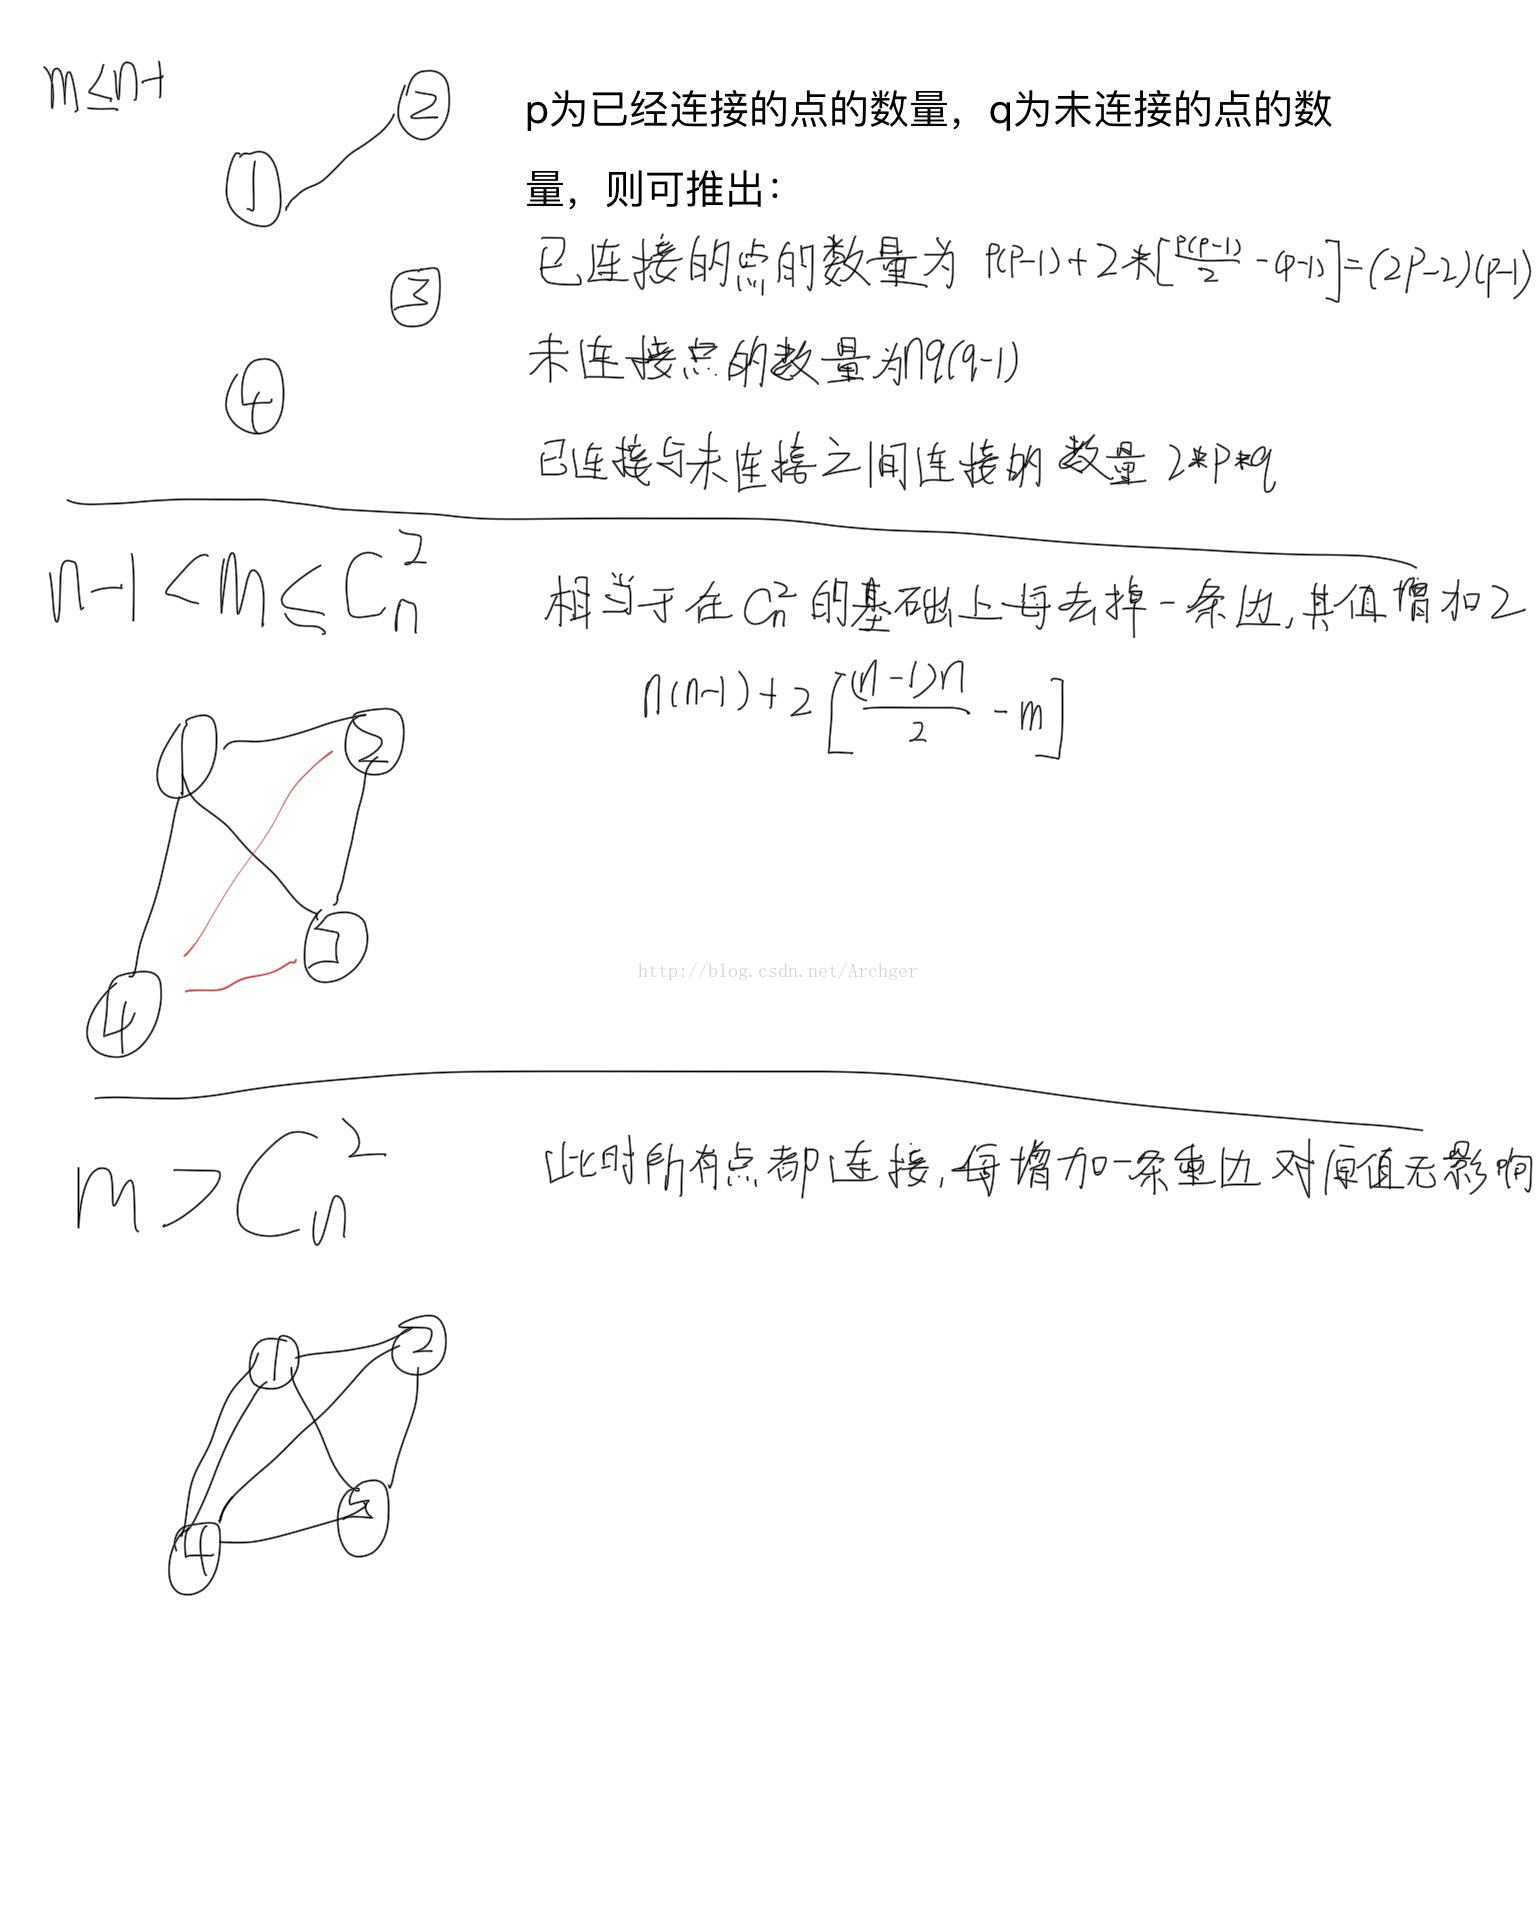 m≤n-1
②
①
③
④
p为已经连接的点的数量，q为未连接的点的数
量，则可推出：
已连接的点的数量为 P(P-1)+2*[P(P-1)/2-(P-1)]=(2P-2)(P-1)
未连接点的数量为nq(q-1)
已连接与未连接之间连接的数量 2*P*q
n-1<m≤C_n^2
相当于在C_n^2的基础上每去掉一条边,其值增加2
n(n-1)+2[(n-1)n/2-m]
①
②
③
④
http://blog.csdn.net/Archger
m>C_n^2
此时所有点都连接,每增加一条重边对原值无影响
①
②
④